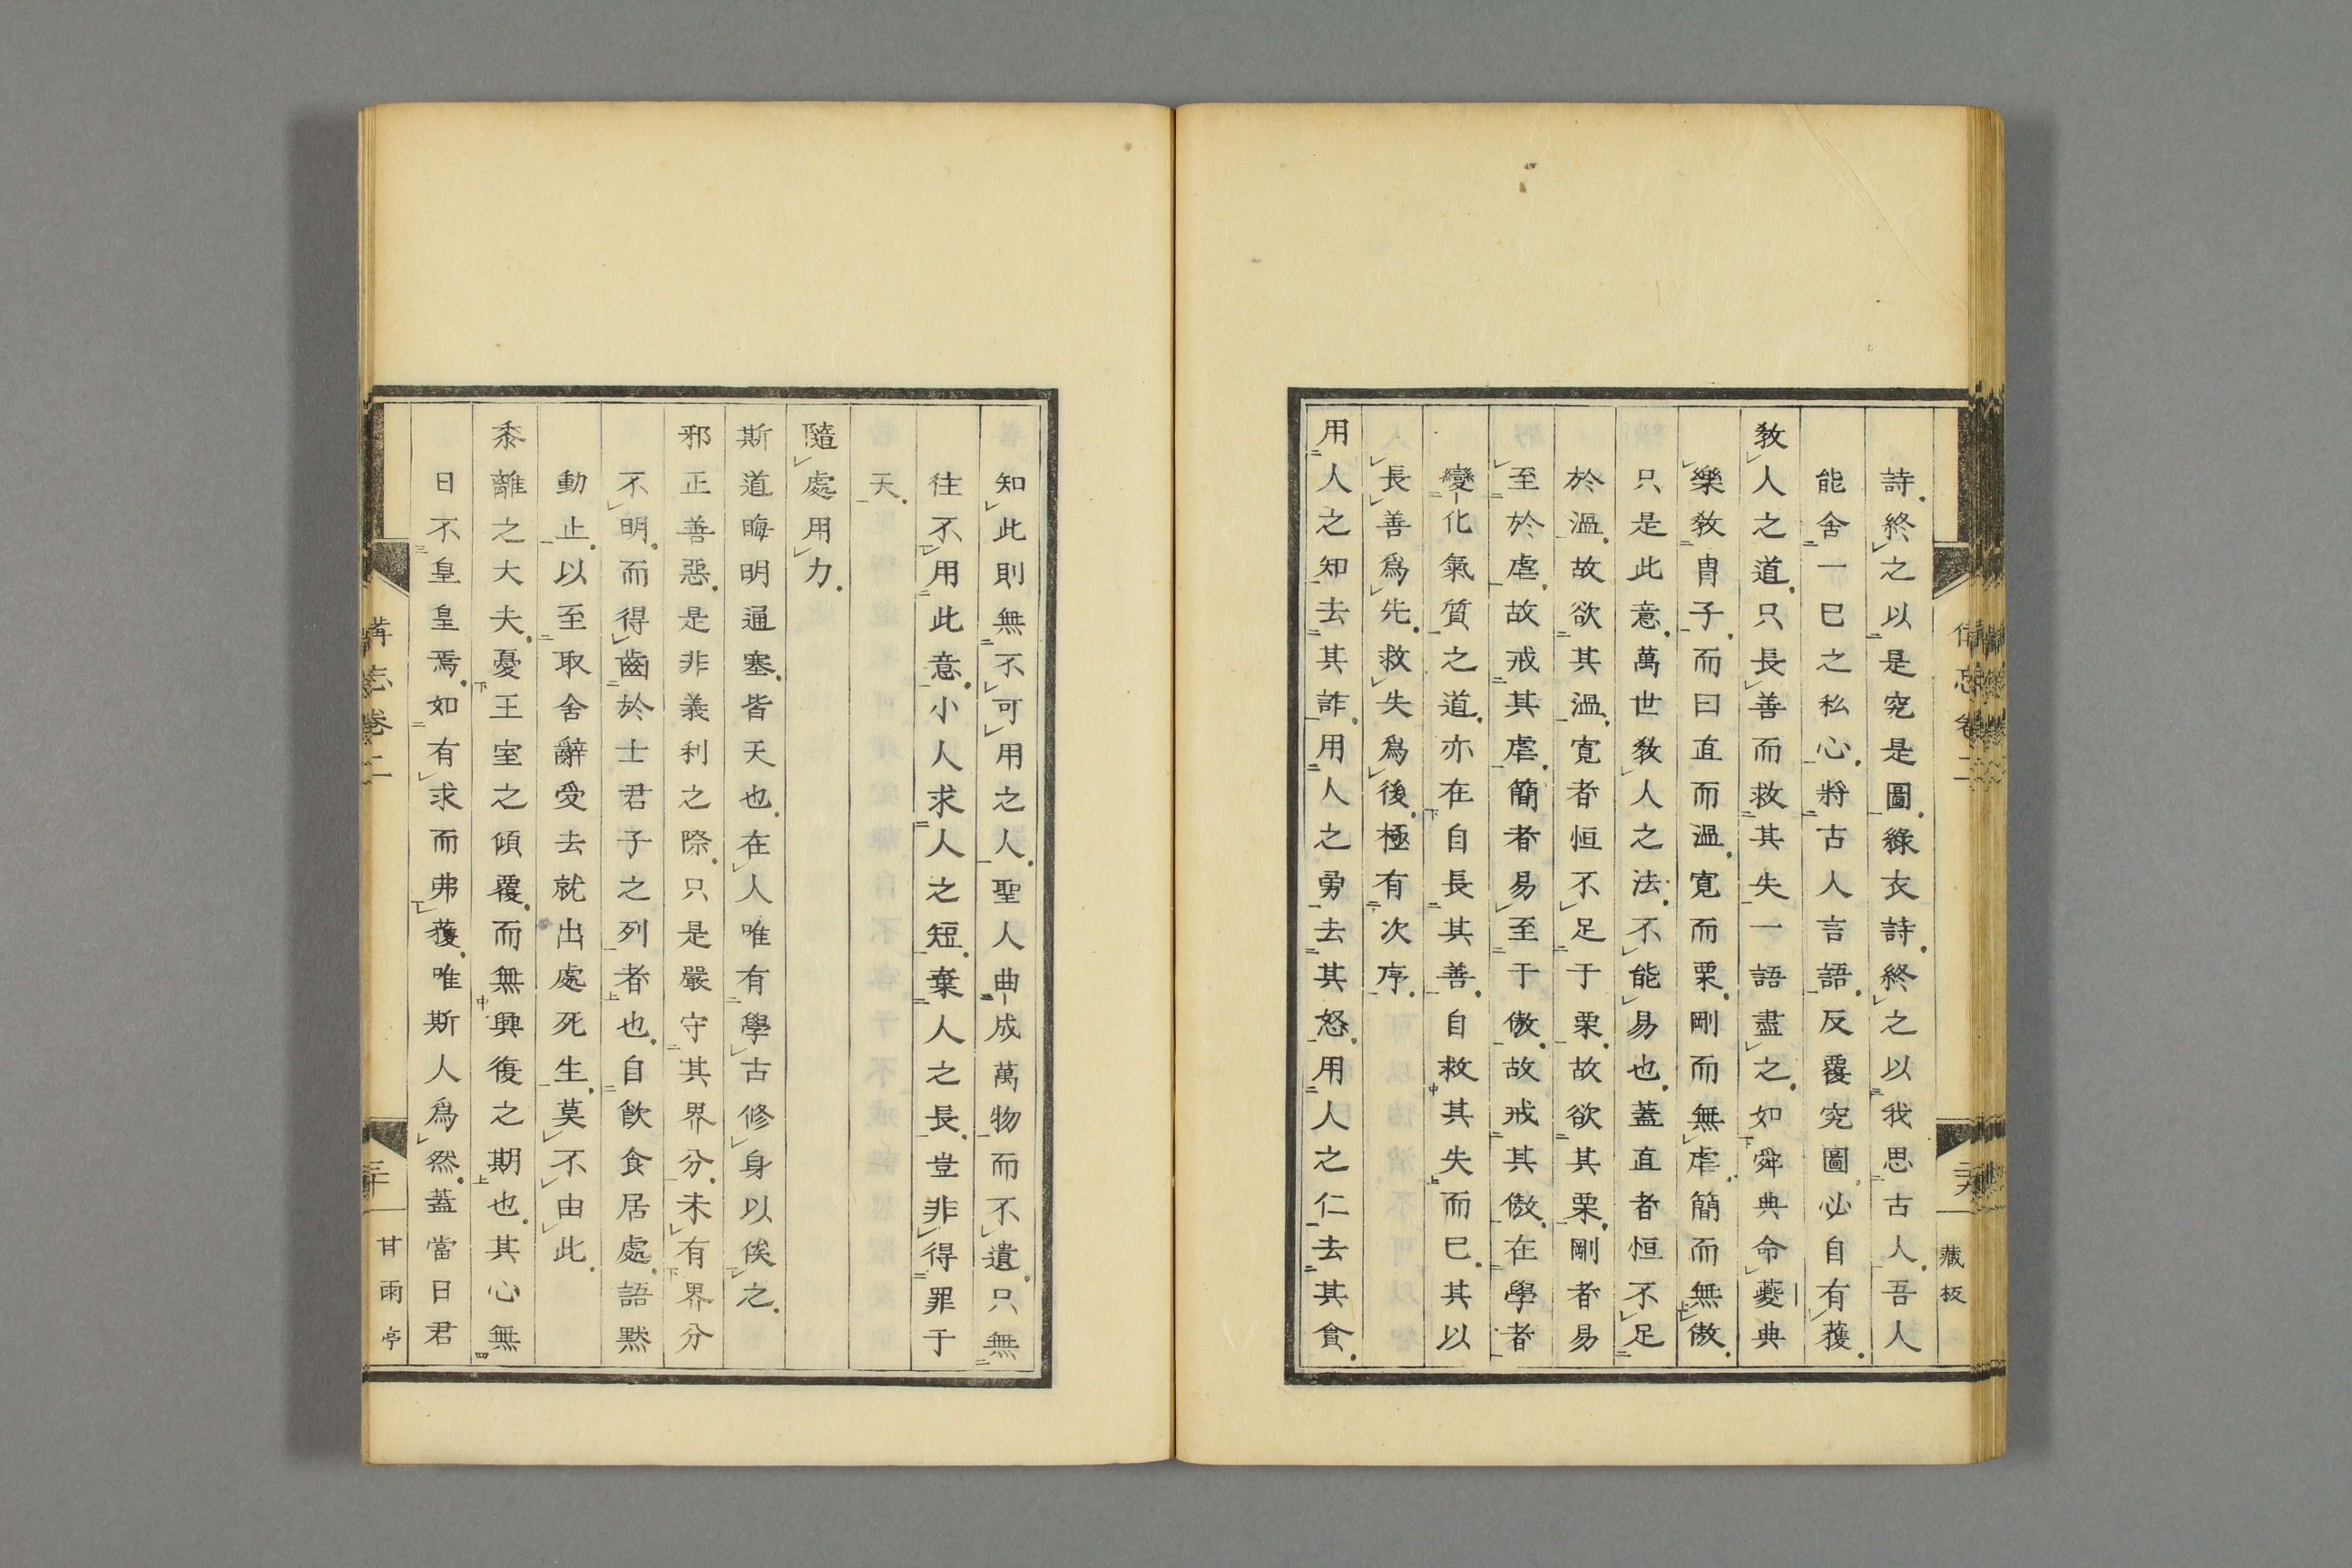 詩終之以是究是圖綠衣詩終之以我思古人吾人
能舍一己之私心將古人言語反覆究圖必自有蒦
敎人之道只長善而救其失一語盡之如舜典命夔典
樂敎胄子而曰直而溫寬而栗剛而無虐簡而無傲
只是此意萬世敎人之法不能易也蓋直者恒不足
於溫故欲其溫寬者恒不足于栗故欲其栗剛者易
至於虐故戒其虐簡者易至于傲故戒其傲在學者
變化氣質之道亦在自長其善自救其失而已其以
長善爲先救失爲後極有次序
用人之知去其詐用人之勇去其怒用人之仁去其貪
藏板
知此則無不可用之人聖人曲成萬物而不遺只無
往不用此意小人求人之短棄人之長豈非得罪于
天
隨處用力
斯道晦明通塞皆天也在人唯有學古修身以俟之
邪正善惡是非義利之際只是嚴守其界分未有界分
不明而得齒於士君子之列者也自飮食居處語默
動止以至取舍辭受去就出處死生莫不由此
黍離之大夫憂王室之傾覆而無興復之期也其心無
日不皇皇焉如有求而弗蒦唯斯人爲然蓋當日君
講志卷二
三十
甘雨亭